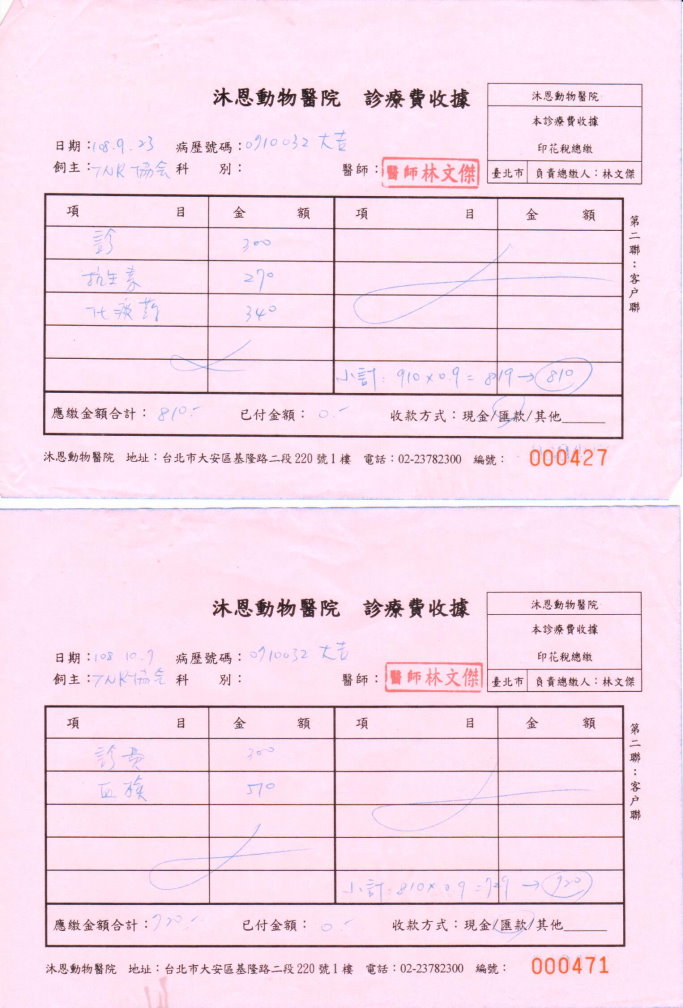 沐恩動物醫院 診療費收據
沐恩動物醫院
本診療費收據
印花稅總繳
臺北市 負責總繳人：林文傑
日期：108.9.23 病歷號碼：0910032 大吉
飼主：TNR協會 科 別： 醫師：醫師林文傑
項 目 金 額 項 目 金 額
診 300
抗生素 270
化痰葯 340
小計：910×0.9=819→810
應繳金額合計：810.- 已付金額：0.- 收款方式：現金/匯款/其他______
第二聯：客户聯
沐恩動物醫院 地址：台北市大安區基隆路二段220號1樓 電話：02-23782300 編號： 000427
沐恩動物醫院 診療費收據
沐恩動物醫院
本診療費收據
印花稅總繳
臺北市 負責總繳人：林文傑
日期：108 10.7 病歷號碼：0910032 大吉
飼主：TNR協會 科 別： 醫師：醫師林文傑
項 目 金 額 項 目 金 額
診費 300
血檢 510
小計：810×0.9=729→720
應繳金額合計：720.- 已付金額：0.- 收款方式：現金/匯款/其他______
第二聯：客户聯
沐恩動物醫院 地址：台北市大安區基隆路二段220號1樓 電話：02-23782300 編號： 000471